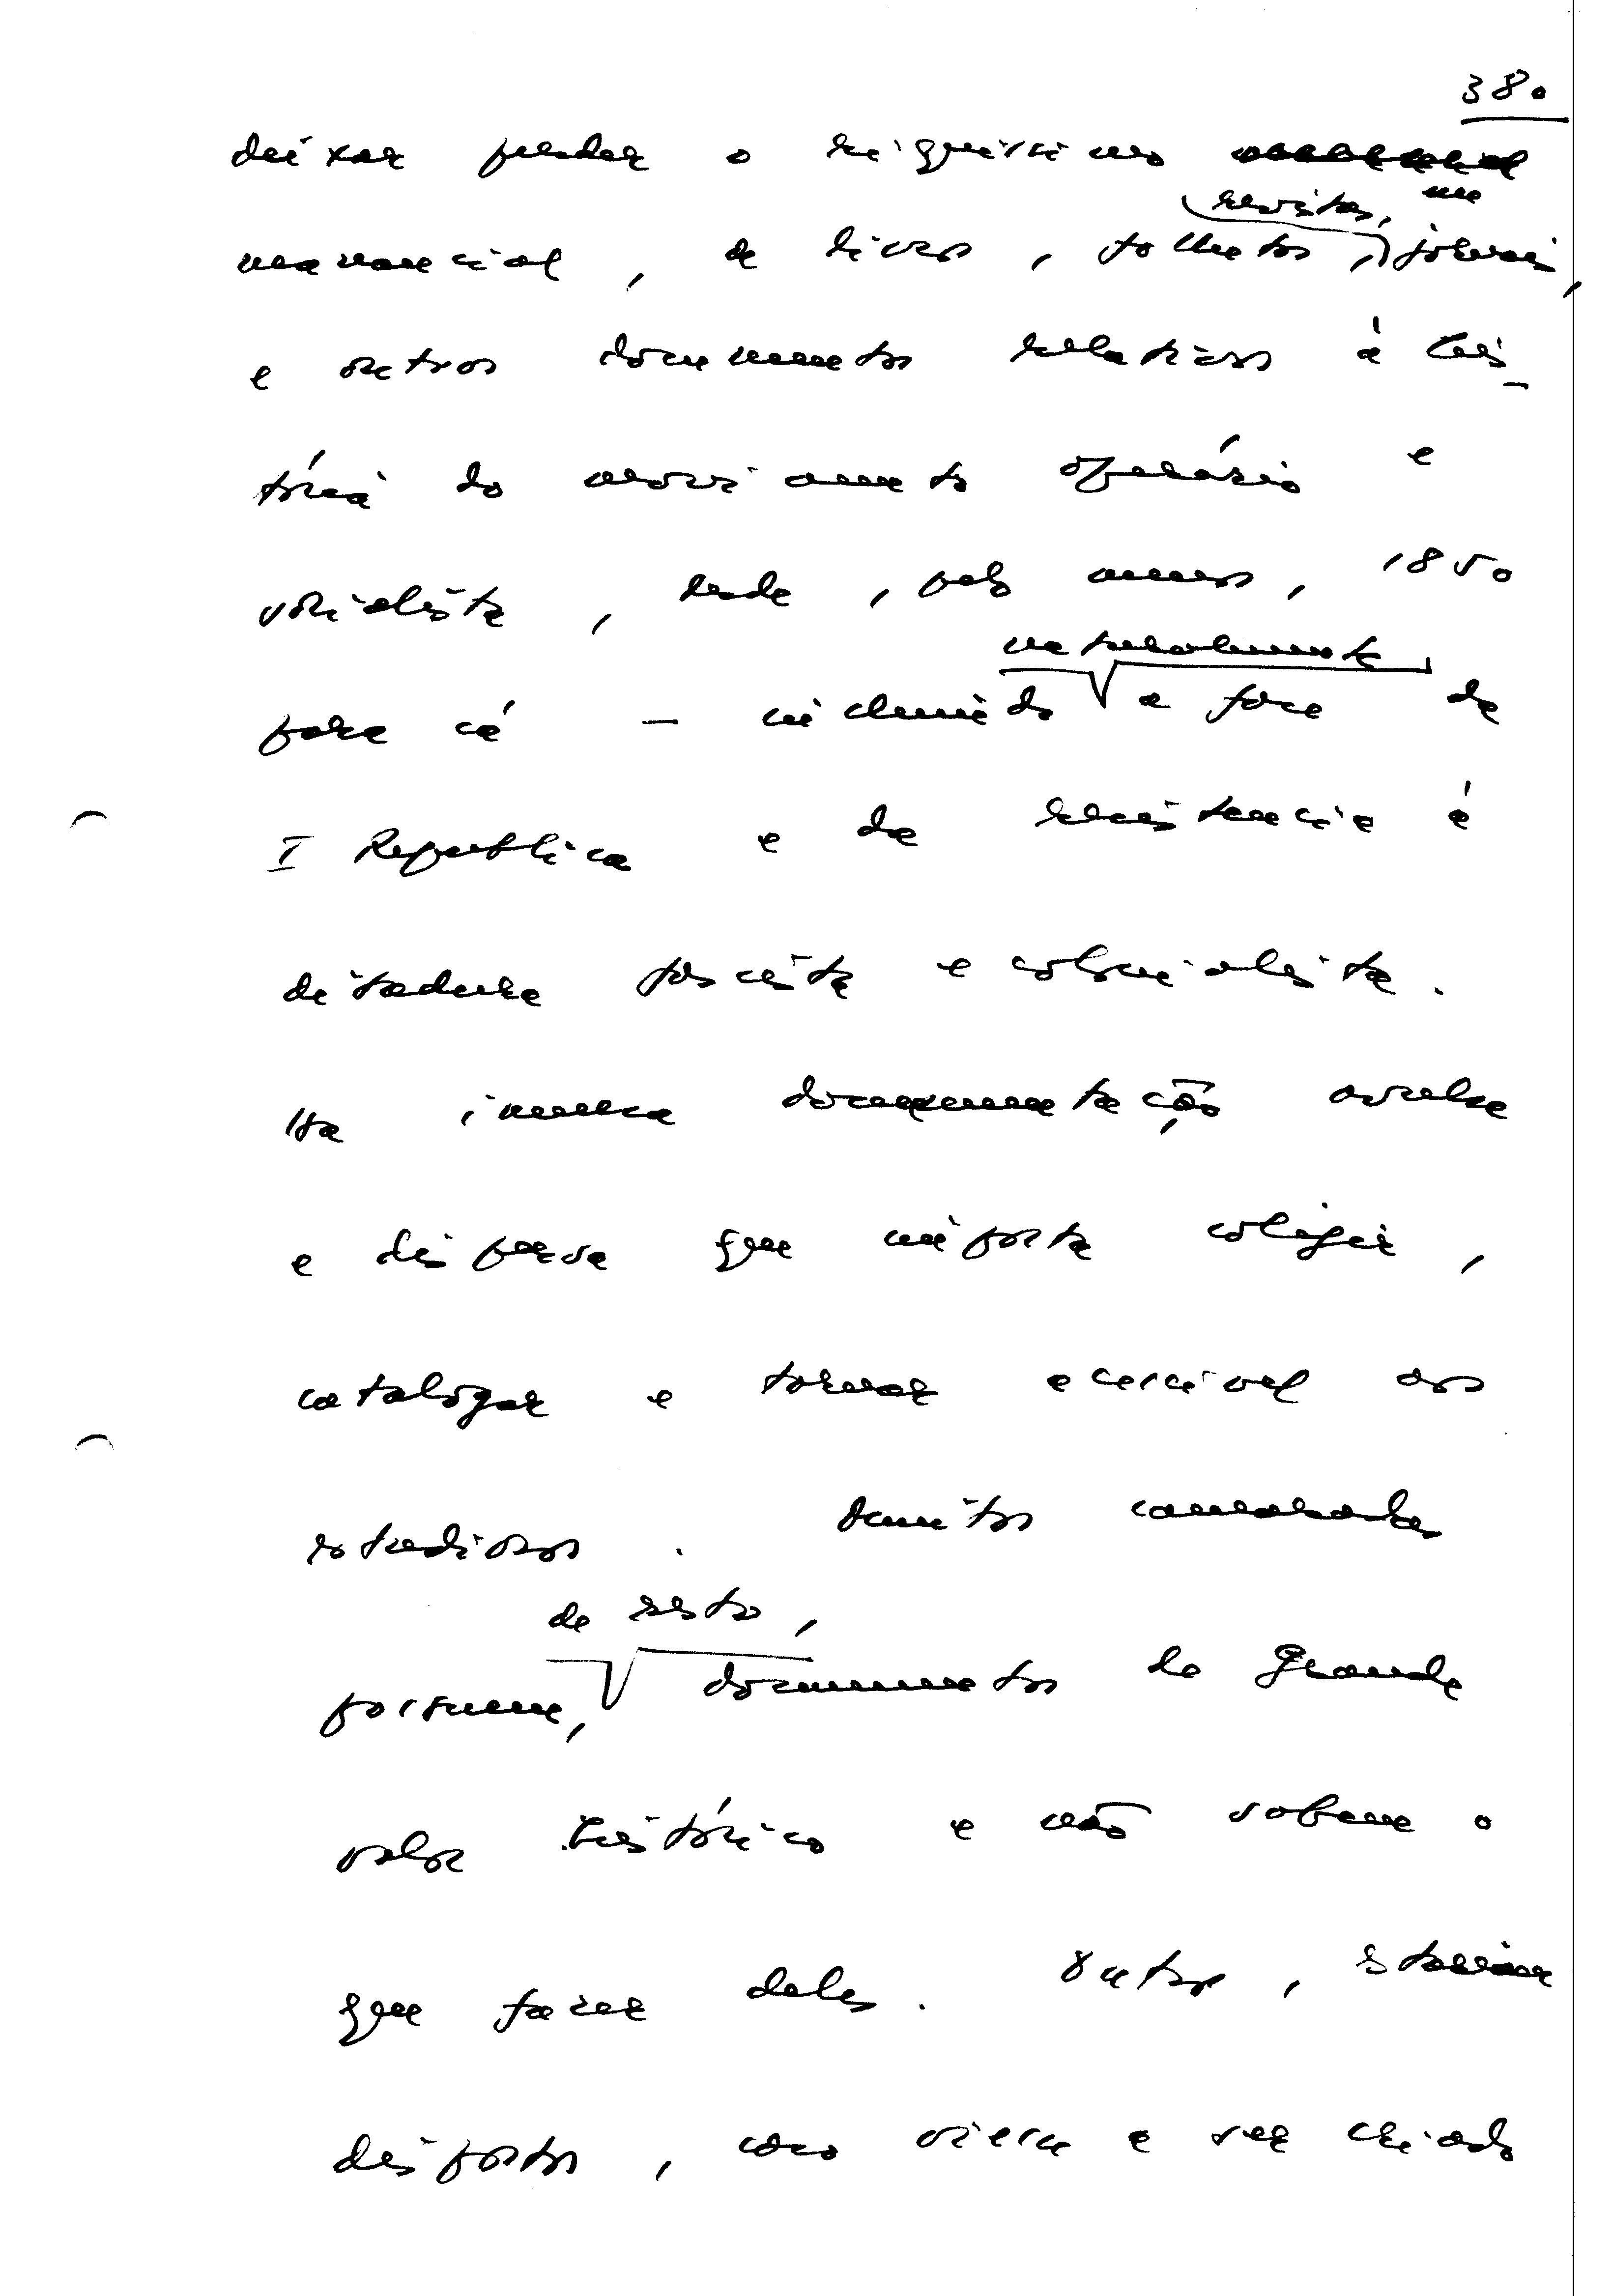 380
deixar perder o riquíssimo
manancial, de livros, folhetos, revistas, jornais,
e outros documentos relativos à his-
tória do movimento operário e
socialista, desde, pelo menos, 1850
para cá — incluindo naturalmente a fase da
I Republica e da resistencia à
ditadura fascista e colonialista.
Ha imensa documentação avulsa
e dispersa que importa coligir,
catalogar e tornar acessivel aos
estudiosos. Muitos camaradas
possuem, de resto, documentos de grande
valor histórico e não sabem o
que fazer deles. Outros, estariam
dispostos, caso viesse a ser criado